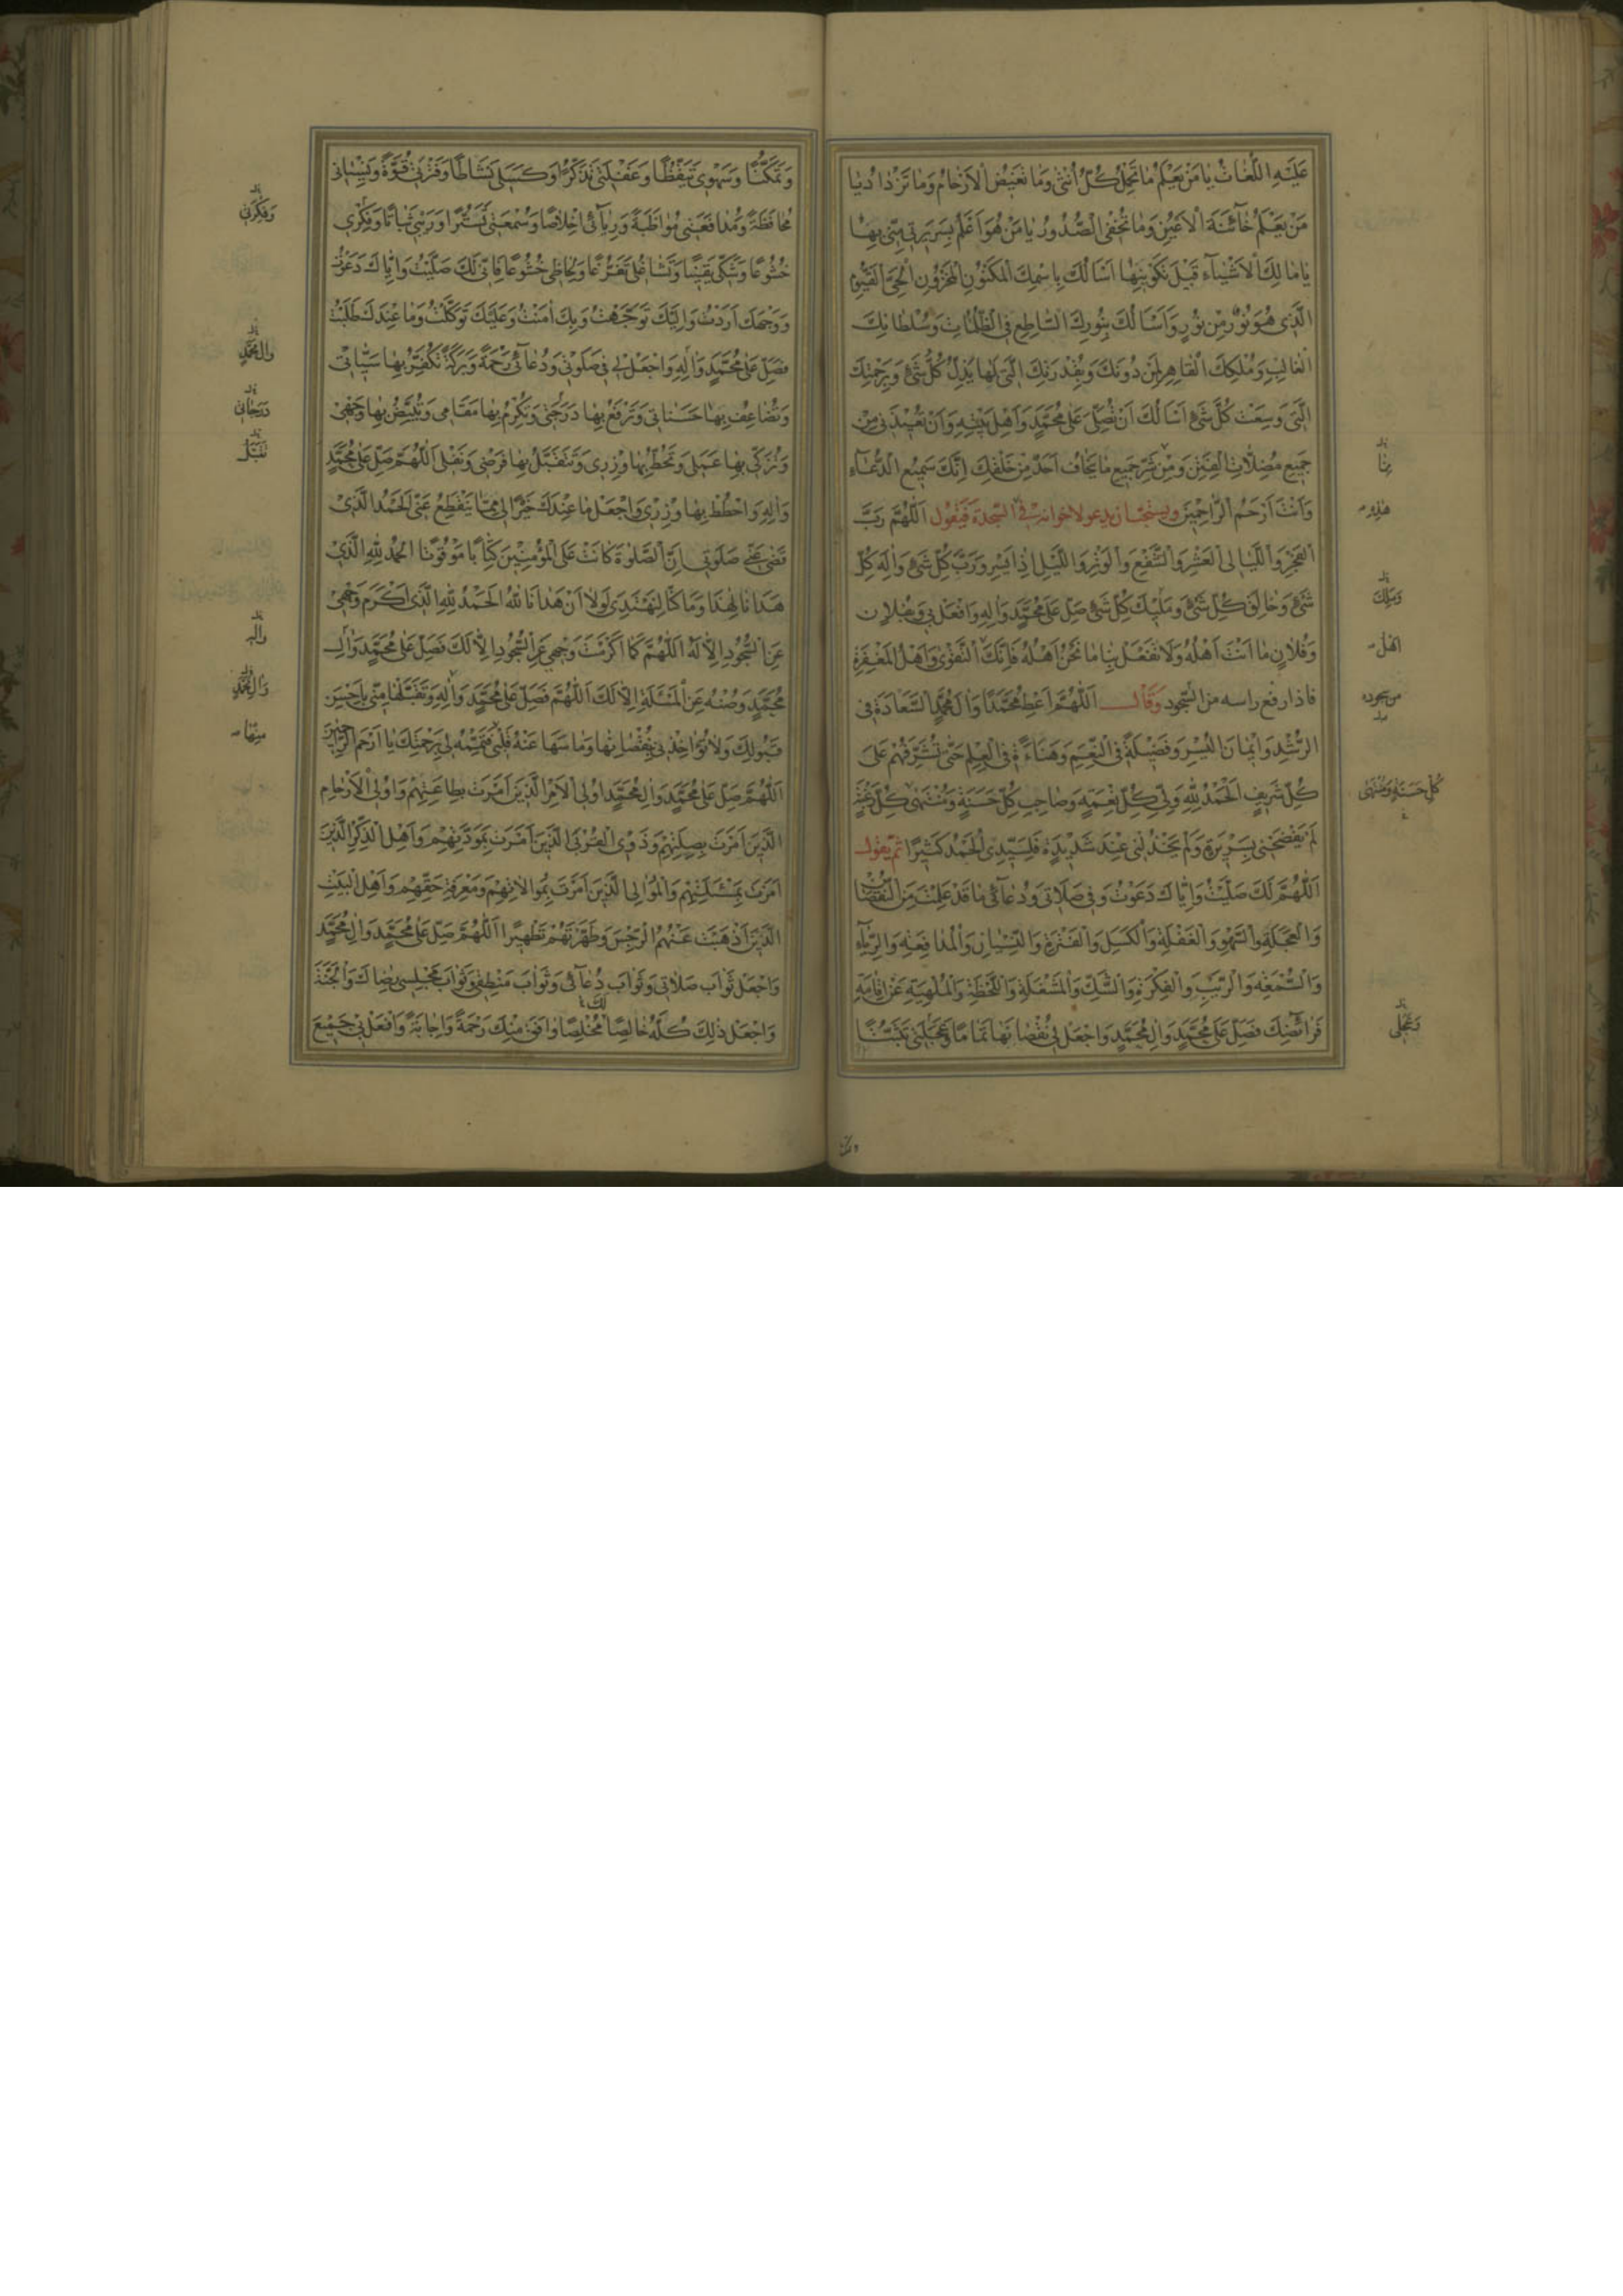 عَلَيْهِ اللُّغَاتُ يَا مَنْ يَعْلَمُ مَا تَحْمِلُ كُلُّ أُنْثَىٰ وَمَا تَغِيضُ الْأَرْحَامُ وَمَا تَزْدَادُ يَا
مَنْ يَعْلَمُ خَائِنَةَ الْأَعْيُنِ وَمَا تُخْفِي الصُّدُورُ يَا مَنْ هُوَ أَعْلَمُ بِسَرِيرَتِي مِنِّي بِهَا
يَا مَالِكَ الْأَشْيَاءِ قَبْلَ تَكْوِينِهَا أَسْأَلُكَ بِاسْمِكَ الْمَكْنُونِ الْمَخْزُونِ الْحَيِّ الْقَيُّومِ
الَّذِي هُوَ نُورٌ مِنْ نُورٍ وَأَسْأَلُكَ بِنُورِكَ السَّاطِعِ فِي الظُّلُمَاتِ وَسُلْطَانِكَ
الْغَالِبِ وَمُلْكِكَ الْقَاهِرِ لِمَنْ دُونَكَ وَبِقُدْرَتِكَ الَّتِي لَهَا يَذِلُّ كُلُّ شَيْءٍ وَبِرَحْمَتِكَ
الَّتِي وَسِعَتْ كُلَّ شَيْءٍ أَسْأَلُكَ أَنْ تُصَلِّيَ عَلَى مُحَمَّدٍ وَأَهْلِ بَيْتِهِ وَأَنْ تُعِيذَنِي مِنْ
جَمِيعِ مُضِلَّاتِ الْفِتَنِ وَمِنْ شَرِّ جَمِيعِ مَا يَخَافُ أَحَدٌ مِنْ خَلْقِكَ إِنَّكَ سَمِيعُ الدُّعَاءِ
وَأَنْتَ أَرْحَمُ الرَّاحِمِينَ ويستحب ان يدعو لاخوانه في السجدة فيقول اَللّٰهُمَّ رَبَّ
الْفَجْرِ وَاللَّيَالِي الْعَشْرِ وَالشَّفْعِ وَالْوَتْرِ وَاللَّيْلِ إِذَا يَسْرِ وَرَبَّ كُلِّ شَيْءٍ وَإِلٰهَ كُلِّ
شَيْءٍ وَخَالِقَ كُلِّ شَيْءٍ وَمَلِيكَ كُلِّ شَيْءٍ صَلِّ عَلَى مُحَمَّدٍ وَآلِهِ وَافْعَلْ بِي وَبِفُلَانٍ
وَفُلَانٍ مَا أَنْتَ أَهْلُهُ وَلَا تَفْعَلْ بِنَا مَا نَحْنُ أَهْلُهُ فَإِنَّكَ أَهْلُ التَّقْوَىٰ وَأَهْلُ الْمَغْفِرَةِ
فاذا رفع راسه من السجود وَقَالَ اَللّٰهُمَّ أَعْطِ مُحَمَّدًا وَآلَ مُحَمَّدٍ السَّعَادَةَ فِي
الرُّشْدِ وَإِيمَانَ الْيُسْرِ وَفَضِيلَةً فِي النِّعَمِ وَهَنَاءَةً فِي الْعِلْمِ حَتَّى تُشَرِّفَهُمْ عَلَى
كُلِّ شَرِيفٍ الْحَمْدُ لِلّٰهِ وَلِيِّ كُلِّ نِعْمَةٍ وَصَاحِبِ كُلِّ حَسَنَةٍ وَمُنْتَهَىٰ كُلِّ رَغْبَةٍ
لَمْ يَفْضَحْنِي بِسَرِيرَةٍ وَلَمْ يَخْذُلْنِي عِنْدَ شَدِيدَةٍ فَلِسَيِّدِي الْحَمْدُ كَثِيرًا ثم يقول
اَللّٰهُمَّ لَكَ صَلَّيْتُ وَإِيَّاكَ دَعَوْتُ وَفِي صَلَاتِي وَدُعَائِي مَا قَدْ عَلِمْتَ مِنَ النُّقْصَانِ
وَالْعَجَلَةِ وَالسَّهْوِ وَالْغَفْلَةِ وَالْكَسَلِ وَالْفَتْرَةِ وَالنِّسْيَانِ وَالْمُدَافَعَةِ وَالرِّيَاءِ
وَالسُّمْعَةِ وَالرَّيْبِ وَالْفِكْرَةِ وَالشَّكِّ وَالْمَشْغَلَةِ وَاللَّحْظَةِ وَالْمُلْهِيَةِ عَنْ إِقَامَةِ
فَرَائِضِكَ فَصَلِّ عَلَى مُحَمَّدٍ وَآلِ مُحَمَّدٍ وَاجْعَلْ لِي نُقْصَانَهَا تَمَامًا وَعَجَلَتِي تَثَبُّتًا
بِنَا
هٰذِهِ
وَمَلِكَ
أَهْلُ
من سجوده
كُلِّ حَسَنَةٍ وَمُنْتَهَى
وَعَجَلِي
وَتَمَكُّنًا وَسَهْوِي تَيَقُّظًا وَغَفْلَتِي تَذَكُّرًا وَكَسَلِي نَشَاطًا وَفَتْرَتِي قُوَّةً وَنِسْيَانِي
مُحَافَظَةً وَمُدَافَعَتِي مُوَاظَبَةً وَرِيَائِي إِخْلَاصًا وَسُمْعَتِي تَسَتُّرًا وَرَيْبِي ثَبَاتًا وَفِكْرِي
خُشُوعًا وَشَكِّي يَقِينًا وَتَشَاغُلِي تَفَرُّغًا وَلِحَاظِي خُشُوعًا فَإِنِّي لَكَ صَلَّيْتُ وَإِيَّاكَ دَعَوْتُ
وَوَجْهَكَ أَرَدْتُ وَإِلَيْكَ تَوَجَّهْتُ وَبِكَ آمَنْتُ وَعَلَيْكَ تَوَكَّلْتُ وَمَا عِنْدَكَ طَلَبْتُ
فَصَلِّ عَلَى مُحَمَّدٍ وَآلِهِ وَاجْعَلْ لِي فِي صَلٰوتِي وَدُعَائِي رَحْمَةً وَبَرَكَةً تُكَفِّرُ بِهَا سَيِّئَاتِي
وَتُضَاعِفُ بِهَا حَسَنَاتِي وَتَرْفَعُ بِهَا دَرَجَتِي وَتُكْرِمُ بِهَا مَقَامِي وَتُبَيِّضُ بِهَا وَجْهِي
وَتُزَكِّي بِهَا عَمَلِي وَتَحُطُّ بِهَا وِزْرِي وَتَتَقَبَّلُ بِهَا فَرْضِي وَنَفْلِي اَللّٰهُمَّ صَلِّ عَلَى مُحَمَّدٍ
وَآلِهِ وَاحْطُطْ بِهَا وِزْرِي وَاجْعَلْ مَا عِنْدَكَ خَيْرًا لِي مِمَّا يَنْقَطِعُ عَنِّي الْحَمْدُ الَّذِي
قَضَىٰ عَنِّي صَلٰوتِي إِنَّ الصَّلٰوةَ كَانَتْ عَلَى الْمُؤْمِنِينَ كِتَابًا مَوْقُوتًا الْحَمْدُ لِلّٰهِ الَّذِي
هَدَانَا لِهٰذَا وَمَا كُنَّا لِنَهْتَدِيَ لَوْلَا أَنْ هَدَانَا اللّٰهُ الْحَمْدُ لِلّٰهِ الَّذِي أَكْرَمَ وَجْهِي
عَنِ السُّجُودِ إِلَّا لَهُ اَللّٰهُمَّ كَمَا أَكْرَمْتَ وَجْهِي عَنِ السُّجُودِ إِلَّا لَكَ فَصَلِّ عَلَى مُحَمَّدٍ وَآلِ
مُحَمَّدٍ وَصُنْهُ عَنِ الْمَسْأَلَةِ إِلَّا لَكَ اَللّٰهُمَّ فَصَلِّ عَلَى مُحَمَّدٍ وَآلِهِ وَتَقَبَّلْهَا مِنِّي بِأَحْسَنِ
قَبُولِكَ وَلَا تُؤَاخِذْنِي بِنُقْصَانِهَا وَمَا سَهَا عَنْهُ قَلْبِي فَتَمِّمْهُ لِي بِرَحْمَتِكَ يَا أَرْحَمَ الرَّاحِمِينَ
اَللّٰهُمَّ صَلِّ عَلَى مُحَمَّدٍ وَآلِ مُحَمَّدٍ أُولِي الْأَمْرِ الَّذِينَ أَمَرْتَ بِطَاعَتِهِمْ وَأُولِي الْأَرْحَامِ
الَّذِينَ أَمَرْتَ بِصِلَتِهِمْ وَذَوِي الْقُرْبَى الَّذِينَ أَمَرْتَ بِمَوَدَّتِهِمْ وَأَهْلِ الذِّكْرِ الَّذِينَ
أَمَرْتَ بِمَسْأَلَتِهِمْ وَالْمَوَالِي الَّذِينَ أَمَرْتَ بِمُوَالَاتِهِمْ وَمَعْرِفَةِ حَقِّهِمْ وَأَهْلِ الْبَيْتِ
الَّذِينَ أَذْهَبْتَ عَنْهُمُ الرِّجْسَ وَطَهَّرْتَهُمْ تَطْهِيرًا اَللّٰهُمَّ صَلِّ عَلَى مُحَمَّدٍ وَآلِ مُحَمَّدٍ
وَاجْعَلْ ثَوَابَ صَلَاتِي وَثَوَابَ دُعَائِي وَثَوَابَ مَنْطِقِي وَثَوَابَ مَجْلِسِي رِضَاكَ وَالْجَنَّةَ
وَاجْعَلْ ذٰلِكَ كُلَّهُ خَالِصًا مُخْلَصًا وَافَقَ مِنْكَ رَحْمَةً وَإِجَابَةً وَافْعَلْ بِي جَمِيعَ
لَكَ
وَفِكْرَتِي
وَآلِ مُحَمَّدٍ
دَرَجَاتِي
تَقَبَّلْ
وَآلِهِ
وَآلِ مُحَمَّدٍ
مِنْهَا